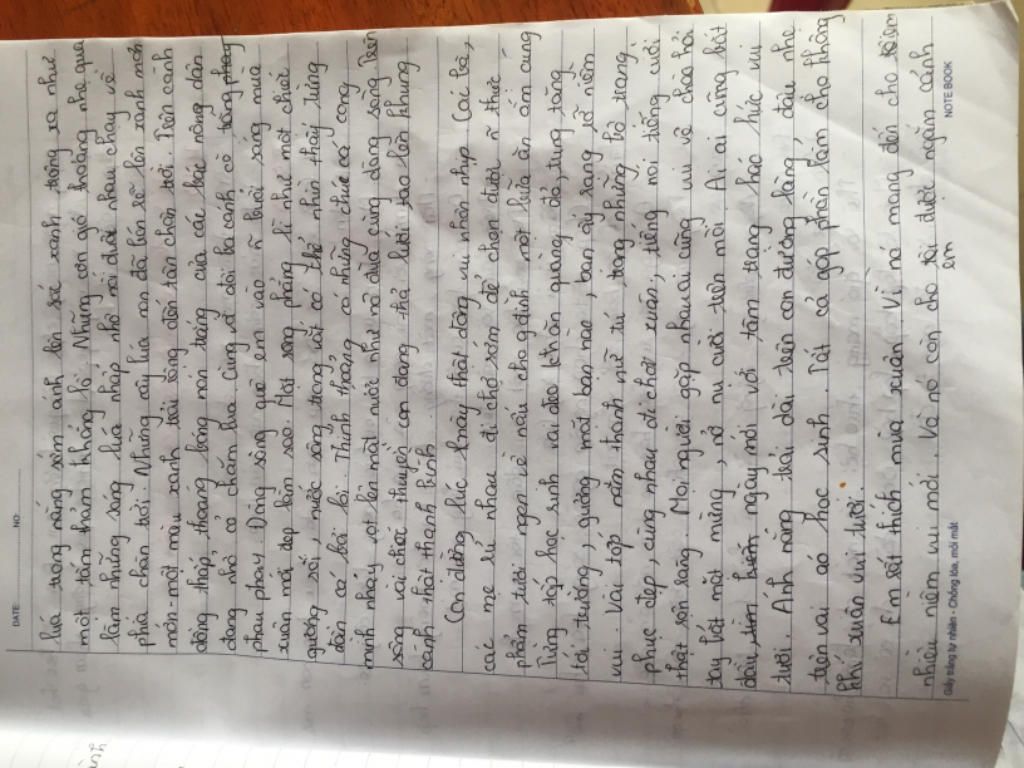 DATE: NO:
lúa trong nắng sớm ánh lên sắc xanh trông xa như
một tấm thảm khổng lồ. Những cơn gió thoảng nhẹ qua
làm những sóng lúa nhấp nhô nối đuôi nhau chạy về
phía chân trời. Những cây lúa non đã bén rễ lên xanh mơn
mởn - một màu xanh trải rộng đến tận chân trời. Trên cánh
đồng thấp thoáng bóng nón trắng của các bác nông dân
đang nhổ cỏ chăm lúa cùng vơ đôi ba cánh cò trắng
phau phau. Dòng sông quê em vào buổi sáng mùa
xuân mới đẹp làm sao. Mặt sông phẳng lì như một chiếc
gương soi, nước sông trong vắt có thể nhìn thấy từng
đàn cá bơi lội. Thỉnh thoảng có những chú cá cong
mình nhảy vọt lên mặt nước như nô đùa cùng dòng sông. Trên
sông vài chiếc thuyền con đang thả lưới tạo lên khung
cảnh thật thanh bình.
Con đường lúc này thật đông vui nhộn nhịp. Các bà,
các mẹ rủ nhau đi chợ sớm để chọn được thực
phẩm tươi ngon về nấu cho gia đình một bữa ăn ấm cúng
Từng tốp học sinh vai đeo khăn quàng đỏ, tung tăng
tới trường, gương mặt bạn nào, bạn ấy sáng rỡ niềm
vui. Vài tốp nam thanh nữ tú trong những bộ trang
phục đẹp, cùng nhau đi chơi xuân, tiếng nói tiếng cười
thật rộn ràng. Mọi người gặp nhau ai cũng vui vẻ chào hỏi
tay bắt mặt mừng, nở nụ cười trên môi. Ai ai cũng bắt
đầu ngày mới với tâm trạng háo hức vui
tươi. Ánh nắng trải dài trên con đường làng, đậu nhẹ
trên vai áo học sinh. Tất cả góp phần làm cho không
khí xuân vui tươi.
Em rất thích mùa xuân. Vì nó mang đến cho
nhiều niềm vui mới. Và nó còn cho em được ngắm cảnh
Giấy trắng tự nhiên - Chống lóa, mỏi mắt NOTE BOOK